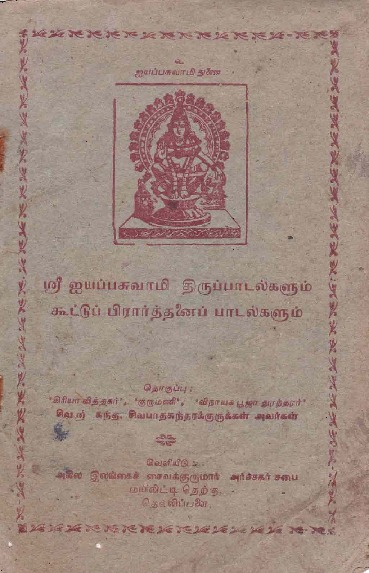 உ
ஐயப்பசுவாமி துணை
ஸ்ரீ ஐயப்பசுவாமி திருப்பாடல்களும்
கூட்டுப் பிரார்த்தனைப் பாடல்களும்
தொகுப்பு :
'கிரியாவித்தகர்', 'குருமணி', 'விநாயக பூஜா துரந்தரர்'
சிவஸ்ரீ கந்த. சிவபாதசுந்தரக்குருக்கள் அவர்கள்
வெளியீடு :
அகில இலங்கைச் சைவக்குருமார் அர்ச்சகர் சபை
மாவிட்டி தெற்கு,
தெல்லிப்பழை.